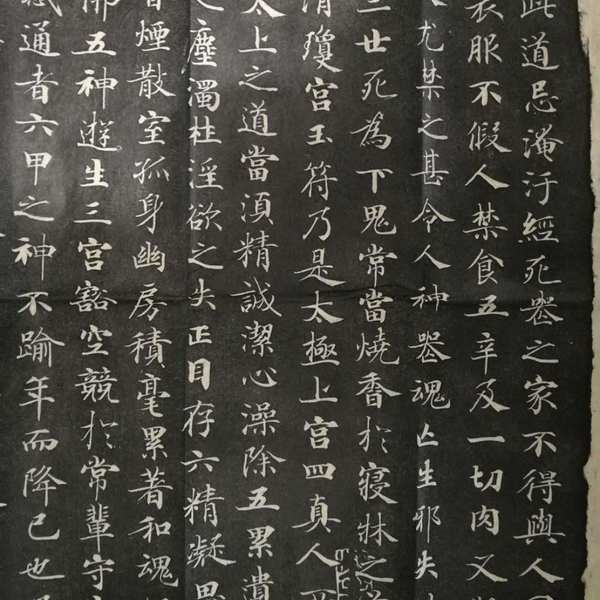 此道忌淹汙經死喪之家不得與人
衣服不假人禁食五辛及一切肉又
尤禁之甚令人神喪魂亡生邪失
三世死為下鬼常當燒香於寢牀之
清瓊宮玉符乃是太極上宮四真人
太上之道當湏精誠潔心澡除五累遺
之塵濁杜淫欲之失正目存六精凝思
香煙散室孤身幽房積毫累著和魂
佛五神遊生三宮豁空競於常輩守
感通者六甲之神不踰年而降己也